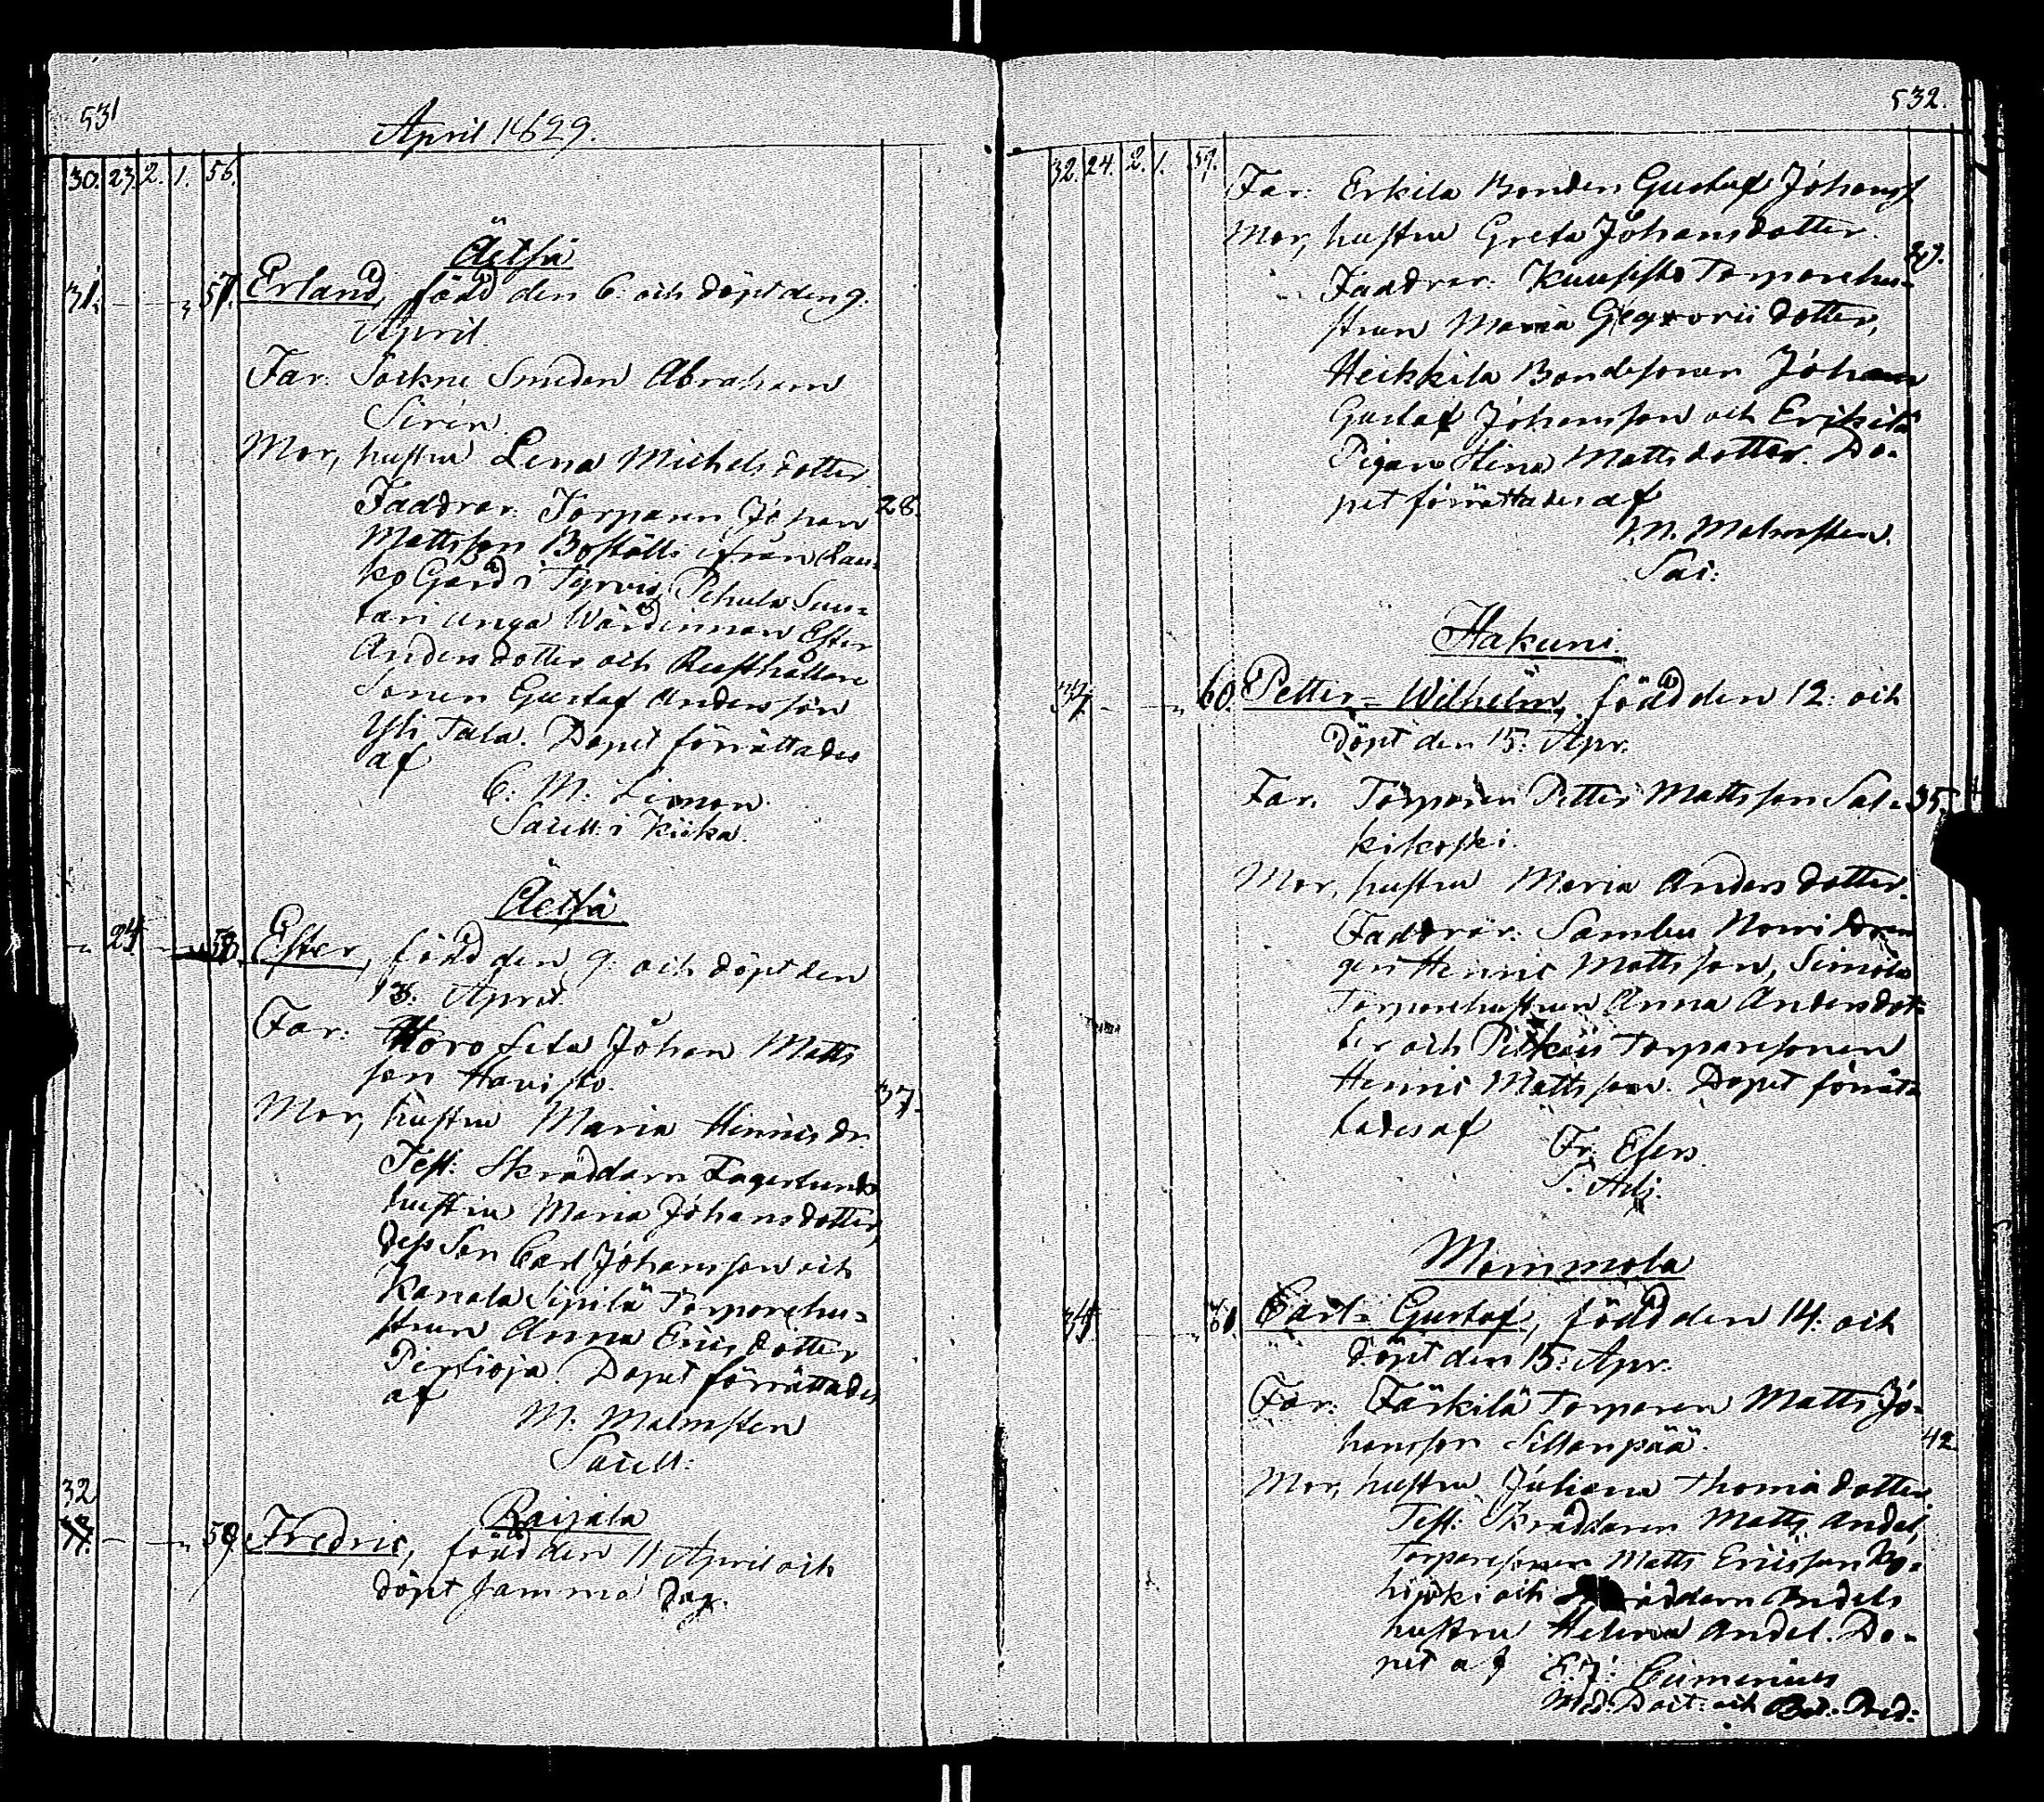 531
April 1829.
30. 23. 2. 1. 56.
Äetsä
31. 57. Erland, född den 6. och döpt den 9.
April.
Far: Sockne Smeden Abraham
Sirén.
Mor, hustru Lena Michelsdotter
Faddrar: Torparen Johan 28.
Mattsson Boställs ifrån Rau-
ko Gård i Tyrvis, Pehula Suu-
tari unga Wärdinnan Ester
Andersdotter och Rusthållare
Sonen Gustaf Andersson
Yli Tala. Dopet förrättades
af
C: M: Limon
Sacell: i Kiika.
Äetsä
24. 58. Ester, född den 9. och döpt den
13. April.
Far: Horo Sela Johan Matts
son Havisto.
Mor, hustru Maria Henricsdr 37.
Test: Skräddarn Fagerlunds
hustru Maria Johansdotter,
dess Son Carl Johansson och
Kanala Sipilä Torparehu-
strun Anna Ericsdotter
Pertioja. Dopet förrättades
af
M: Malmsten
Sacell:
32
Raijala
59 Fredric, född den 11 April och
döpt samma dag.
532.
32. 24. 2. 1. 59.
Far: Erkila Bonden Gustaf Johanss
Mor, hustru Greta Johansdotter.
Faddrar: Kuusisto Torparehu-
strun Maria Gregorii dotter,
Heikkila Bondesonen Johan
Gustaf Johansson och Erikilä
Pigan Hina Mattsdotter. Do-
pet förrättades af
M. Malmsten.
Sac:
Hakuni
60. Petter-Wilhelm, född den 12: och
döpt den 15: Apr.
Far. Torparen Petter Mattsson Sal- 35.
kikoski.
Mor, hustru Maria Andersdotter.
Faddrar: Sambu Nouri Drän
gen Henric Mattsson, Simola
Torparehustrun Anna Andersdot-
ter och Torparesonen
Henric Mattsson. Dopet förrät-
tades af
Fr: Esers
P. Adj.
Mommola
61. Carl-Gustaf, född den 14: och
döpt den 15: Apr.
Far: Färkilä Torparen Matts Jo-
hansson Sillanpää. 42
Mor, hustru Juliana Thomædotter
Test: Skräddaren Matts Andel,
Torparesonen Matts Ericsson Ky-
hijoki och Skräddarn Andels
hustru Helena Andel. Do-
pet af E. J: Cumenius
Mid: Doct: och Bat: Pred: